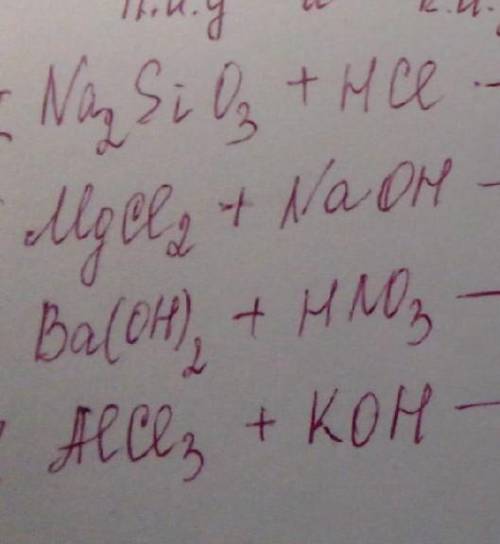 п.и.у и к.и.у
Na₂SiO₃ + HCl -
MgCl₂ + NaOH -
Ba(OH)₂ + HNO₃ -
AlCl₃ + KOH -